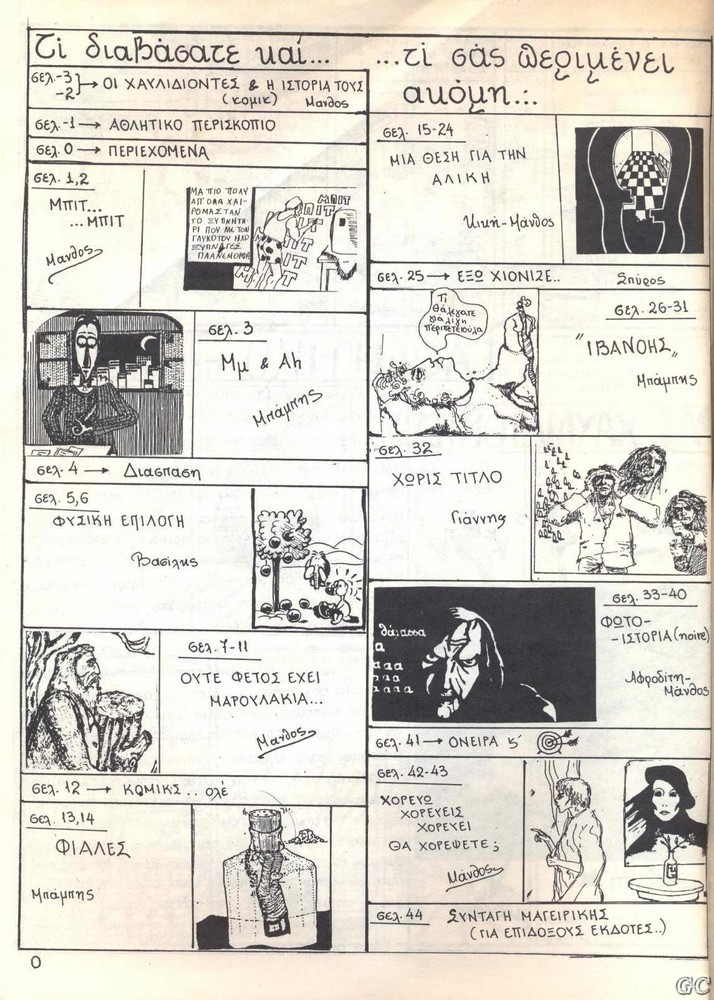 Τι διαβάσατε και...
σελ.-3
-2 → ΟΙ ΧΑΥΛΙΔΙΟΝΤΕΣ & Η ΙΣΤΟΡΙΑ ΤΟΥΣ
(κομικ) Μανθος
σελ. -1 → ΑΘΛΗΤΙΚΟ ΠΕΡΙΣΚΟΠΙΟ
σελ. 0 → ΠΕΡΙΕΧΟΜΕΝΑ
σελ. 1,2
ΜΠΙΤ...
...ΜΠΙΤ
Μανθος
ΜΑ ΠΙΟ ΠΟΛΥ
ΑΠ' ΟΛΑ ΧΑΙ-
ΡΟΜΑΣΤΑΝ
ΤΟ ΞΥΠΝΗΤΗ-
ΡΙ ΠΟΥ ΜΕ ΤΟΝ
ΓΛΥΚΟ ΤΟΝ ΗΧΟ
ΜΠΙΤ
σελ. 3
Μμ & Αh
Μπάμπης
σελ. 4 → Διασπαση
σελ. 5,6
ΦΥΣΙΚΗ ΕΠΙΛΟΓΗ
Βασίλης
σελ. 7-11
ΟΥΤΕ ΦΕΤΟΣ ΕΧΕΙ
ΜΑΡΟΥΛΑΚΙΑ...
Μανθος
σελ. 12 → ΚΟΜΙΚΣ.. ολέ
σελ. 13,14
ΦΙΑΛΕΣ
Μπάμπης
0
...τί σάς περιμένει
ακόμη...
σελ. 15-24
ΜΙΑ ΘΕΣΗ ΓΙΑ ΤΗΝ
ΑΛΙΚΗ
Κική-Μάνθος
σελ. 25 → ΕΞΩ ΧΙΟΝΙΖΕ.. Σπύρος
Τι
θα λέγατε
για λίγη
περιπετειούλα
σελ. 26-31
"ΙΒΑΝΟΗΣ"
Μπάμπης
σελ. 32
ΧΩΡΙΣ ΤΙΤΛΟ
Γιάννης
θάλασσα
α
ααα
ααα
σελ. 33-40
ΦΩΤΟ-
-ΙΣΤΟΡΙΑ (noire)
Αφροδίτη-
Μάνθος
σελ. 41 → ΟΝΕΙΡΑ ς'
σελ. 42-43
ΧΟΡΕΥΩ
ΧΟΡΕΥΕΙΣ
ΧΟΡΕΥΕΙ
ΘΑ ΧΟΡΕΨΕΤΕ;
Μάνθος
σελ. 44 ΣΥΝΤΑΓΗ ΜΑΓΕΙΡΙΚΗΣ
(ΓΙΑ ΕΠΙΔΟΞΟΥΣ ΕΚΔΟΤΕΣ..)
GC